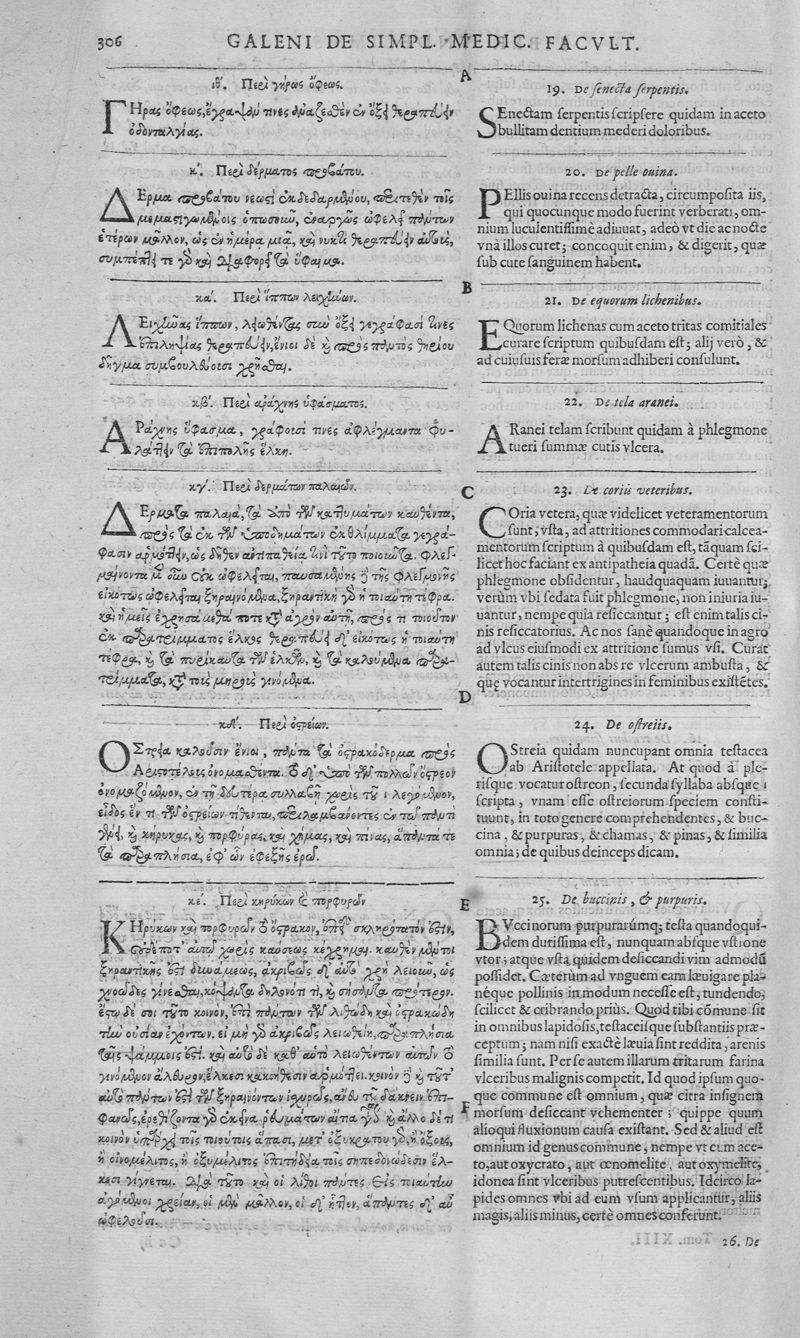 306
GALENI DE SIMPL. MEDIC. FACVLT.
ιθ΄. Περὶ γήρως ὄφεως.
ΓΗρας ὄφεως, ἔγραψάν τινες ἀναζεσθὲν ἐν ὄξει θεραπεύειν
ὀδονταλγίας.
κ΄. Περὶ δέρματος προβάτου.
ΔΕρμα προβάτου νεωστὶ ἐκδεδαρμένου, περιτεθὲν τοῖς
μεμαστιγωμένοις ὁπωσοῦν, ἐναργῶς ὠφελεῖ πάντων
ἑτέρων μᾶλλον, ὡς ἐν ἡμέρα μιᾷ, καὶ νυκτὶ θεραπεύειν αὐτούς,
συμπέττει τε γὰρ καὶ διαφορεῖ τὰ ὕφαιμα.
κα΄. Περὶ ἵππων λειχήνων.
ΛΕιχῆνας ἵππων, λειωθέντας σὺν ὄξει γεγράφασί τινες
ἐπιληψίας θεραπεύειν, ἔνιοι δὲ καὶ πρὸς παντὸς θηρίου
δῆγμα συμβουλεύουσι χρῆσθαι.
κβ΄. Περὶ ἀράχνης ὑφάσματος.
ΑΡάχνης ὕφασμα, γράφουσί τινες ἀφλέγμαντα φυ-
λάττειν τὰ ἐπιπολῆς ἕλκη.
κγ΄. Περὶ δερμάτων παλαιῶν.
ΔΕρματα παλαιὰ, τὰ ἀπὸ τῶν καττυμάτων καυθέντα,
πρὸς τὰ ἐκ τῶν ὑποδημάτων ἐκθλίμματα γεγρά-
φασιν ἁρμόττειν, ὡς δῆθεν ἀντιπαθείᾳ τινὶ τοῦτο ποιοῦντα. Φλεγ-
μαίνοντα μὲν οὖν οὐκ ὠφελεῖται, παυσαμένης δὲ τῆς φλεγμονῆς
εἰκότως ὠφελεῖται ξηραινόμενα, ξηραντικὴ γὰρ ἡ τοιαύτη τέφρα.
καὶ ἡμεῖς ἐχρησάμεθά ποτε κατ' ἀγρὸν αὐτῇ, πρός τι τοιοῦτον
ἐκ παρατρίμματος ἕλκος. θεραπεύει δ' εἰκότως ἡ τοιαύτη
τέφρα, καὶ τὰ πυρίκαυτα τῶν ἑλκῶν, καὶ τὰ καλούμενα παρα-
τρίμματα, κατὰ τοῖς μηροῖς γινόμενα.
κδ΄. Περὶ ὀστρείων.
ΟΣτρεια καλοῦσιν ἔνιοι, πάντα τὰ ὀστρακόδερμα πρὸς
Ἀριστοτέλους ὀνομασθέντα. τὸ δ' ὑπὸ τῶν πολλῶν ὄστρεον
ὀνομαζόμενον, ἐν τῇ δευτέρᾳ συλλαβῇ χωρὶς τοῦ ι λεγόμενον,
εἶδος ἕν τι τῶν ὀστρείων τίθενται, περιλαμβάνοντες ἐν τῷ παντὶ
γένει, καὶ κήρυκας, καὶ πορφύρας, καὶ χήμας, καὶ πίνας, ἅπαντά τε
τὰ παραπλήσια, ἐφ' ὧν ἐφεξῆς ἐρῶ.
κε΄. Περὶ κηρύκων καὶ πορφυρῶν
ΚΗρύκων καὶ πορφυρῶν τὸ ὄστρακον, ἐπειδὴ σκληρότατόν ἐστιν,
οὐδέποτ' αὐτῷ χωρὶς καύσεως κέχρημαι. καυθὲν μέντοι
ξηραντικῆς ἐστὶ δυνάμεως, ἀκριβῶς δ' αὐτὸ χρὴ λειοῦν, ὡς
χνοῶδες γίνεσθαι, κόψαντα δηλονότι, καὶ σήσαντα πρότερον.
ἔστω δέ σοι τοῦτο κοινὸν, ἐπὶ πάντων τῶν λιθώδη καὶ ὀστρακώδη
τὴν οὐσίαν ἐχόντων. εἰ μὴ γὰρ ἀκριβῶς λειωθείη, παραπλήσια
ταῖς ψάμμοις ἐστί. καὶ αὐτὸ δὲ καθ' αὑτὸ λειωθέντων αὐτῶν τὸ
γινόμενον ἄλευρον, ἕλκεσι κακοήθεσιν ἁρμόττει. κοινὸν δὲ καὶ τοῦτ'
αὐτὸ πάντων ἐστὶ τῶν ξηραινόντων ἰσχυρῶς, ἄνευ τοῦ δάκνειν ἐπι-
φανῶς, ἐρεθίζοντα γὰρ ἐκεῖνα ῥευμάτων αἴτια γίνεται καὶ ἄλλο δέ τι
κοινὸν ὑπάρχει τοῖς τοιούτοις ἅπασι, μετ' ὀξυκράτου γὰρ, ἢ ὄξους,
ἢ οἰνομέλιτος, ἢ ὀξυμέλιτος ἐπιτήδεια τοῖς σηπεδονώδεσιν ἕλ-
κεσι γίνεται. διὰ τοῦτο καὶ οἱ λίθοι πάντες εἰς τοιαύτην
ἄγονται χρείαν, οἱ μὲν μᾶλλον, οἱ δ' ἧττον, ἅπαντες δ' οὖν
ὠφελοῦσι.
A
B
C
D
E
F
19. De senecta serpentis.
SEnectam serpentis scripsere quidam in aceto
bullitam dentium mederi doloribus.
20. De pelle ouina.
PEllis ouina recens detracta, circumposita iis,
qui quocunque modo fuerint verberati, om-
nium luculentissimè adiuuat, adeò vt die ac nocte
vnà illos curet; concoquit enim, & digerit, quæ
sub cute sanguinem habent.
21. De equorum lichenibus.
EQuorum lichenas cum aceto tritas comitiales
curare scriptum quibusdam est; alij verò, &
ad cuiusuis feræ morsum adhiberi consulunt.
22. De tela aranei.
ARanei telam scribunt quidam à phlegmone
tueri summæ cutis vlcera.
23. De coriis veteribus.
COria vetera, quæ videlicet veteramentorum
sunt, vsta, ad attritiones commodari calcea-
mentorum scriptum à quibusdam est, tãquam sci-
licet hoc faciant ex antipatheia quadã. Certè quæ
phlegmone obsidentur, haudquaquam iuuantur;
verùm vbi sedata fuit phlegmone, non iniuria iu-
uantur, nempe quia resiccantur; est enim talis ci-
nis resiccatorius. Ac nos sanè quandoque in agro
ad vlcus eiusmodi ex attritione sumus vsi. Curat
autem talis cinis non abs re vlcerum ambusta, &
quę vocantur intertrigines in feminibus existẽtes.
24. De ostreiis.
OStreia quidam nuncupant omnia testacea
ab Aristotele appellata. At quod à ple-
risque vocatur ostreon, secunda syllaba absque i
scripta, vnam esse ostreiorum speciem consti-
tuunt, in toto genere comprehendentes, & buc-
cina, & purpuras, & chamas, & pinas, & similia
omnia; de quibus deinceps dicam.
25. De buccinis, & purpuris.
BVccinorum purpurarúmq; testa quandoqui-
dem durissima est, nunquam absque vstione
vtor; atque vsta quidem desiccandi vim admodũ
possidet. Cæterùm ad vnguem eam læuigare pla-
néque pollinis in modum necesse est, tundendo,
scilicet & cribrando prius. Quod tibi cõmune sit
in omnibus lapidosis, testaceisque substantiis præ-
ceptum; nam nisi exactè læuia sint reddita, arenis
similia sunt. Per se autem illarum tritarum farina
vlceribus malignis competit. Id quod ipsum quo-
que commune est omnium, quæ citra insignem
morsum desiccant vehementer; quippe quum
alioqui fluxionum causa existant. Sed & aliud est
omnium id genus commune, nempe vt cum ace-
to, aut oxycrato, aut œnomelite, aut oxymelite,
idonea sint vlceribus putrescentibus. Idcirco la-
pides omnes vbi ad eum vsum applicantur, aliis
magis, aliis minus, certè omnes conferunt.
26. De